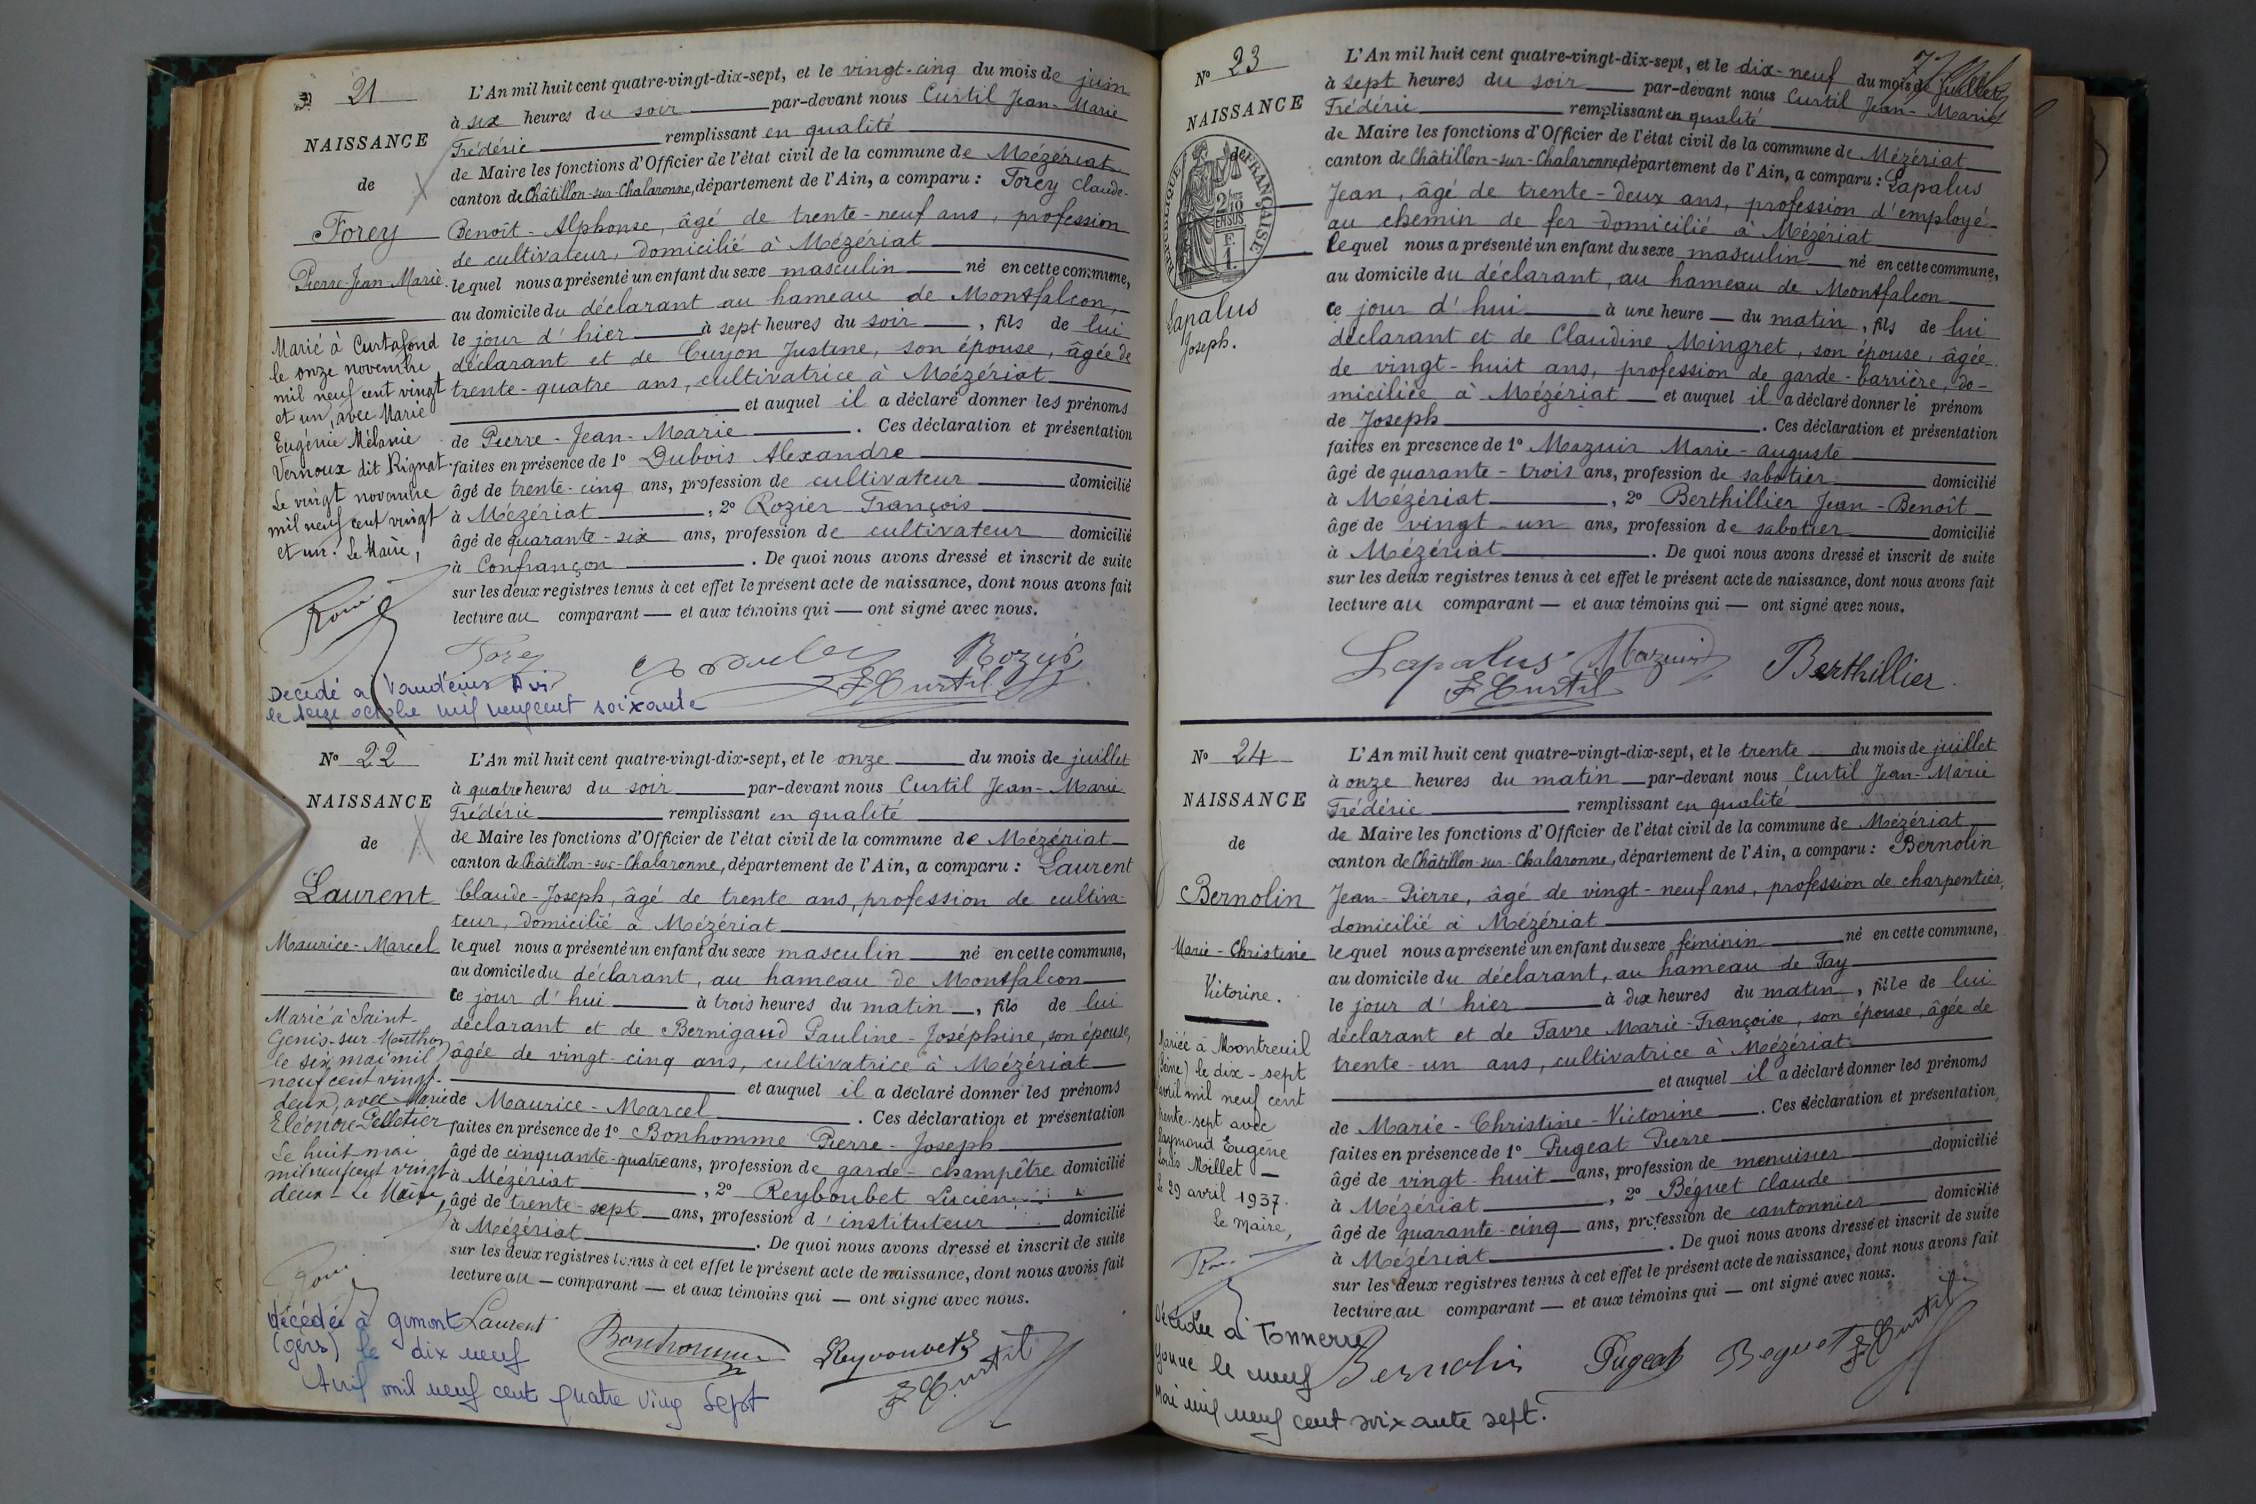 21
NAISSANCE
de
Forey
Pierre-Jean Marie
Marié à Curtafond
le onze novembre
mil neuf cent vingt
et un, avec Marie
Eugénie Mélanie
Vernoux dit Rignat.
Le vingt novembre
mil neuf cent vingt
et un. Le Maire,
L'An mil huit cent quatre-vingt-dix-sept, et le vingt-cinq du mois de juin
à six heures du soir par-devant nous Curtil Jean-Marie
Frédéric remplissant en qualité
de Maire les fonctions d'Officier de l'état civil de la commune de Mézériat
canton de Châtillon-sur-Chalaronne, département de l'Ain, a comparu : Forey Claude-
Benoît-Alphonse, âgé de trente-neuf ans, profession
de cultivateur, domicilié à Mézériat
lequel nous a présenté un enfant du sexe masculin né en cette commune,
au domicile du déclarant au hameau de Montfalcon,
le jour d'hier à sept heures du soir, fils de lui
déclarant et de Guyon Justine, son épouse, âgée de
trente-quatre ans, cultivatrice à Mézériat
et auquel il a déclaré donner les prénoms
de Pierre-Jean-Marie. Ces déclaration et présentation
faites en présence de 1º Dubois Alexandre
âgé de trente-cinq ans, profession de cultivateur domicilié
à Mézériat, 2º Rozier François
âgé de quarante-six ans, profession de cultivateur domicilié
à Confrançon. De quoi nous avons dressé et inscrit de suite
sur les deux registres tenus à cet effet le présent acte de naissance, dont nous avons fait
lecture au comparant — et aux témoins qui — ont signé avec nous.
Forey Rozier
F Curtil
Décédé a
le seize octobre mil neuf cent soixante
Nº 22
NAISSANCE
de
Laurent
Maurice-Marcel
Marié à Saint-
Genis-sur-Menthon
le six mai mil
neuf cent vingt-
deux, avec Marie
Eléonore Pelletier
Le huit mai
mil neuf cent vingt
deux - Le Maire,
L'An mil huit cent quatre-vingt-dix-sept, et le onze du mois de juillet
à quatre heures du soir par-devant nous Curtil Jean-Marie
Frédéric remplissant en qualité
de Maire les fonctions d'Officier de l'état civil de la commune de Mézériat
canton de Châtillon-sur-Chalaronne, département de l'Ain, a comparu : Laurent
Claude-Joseph, âgé de trente ans, profession de cultiva-
teur, domicilié à Mézériat
lequel nous a présenté un enfant du sexe masculin né en cette commune,
au domicile du déclarant, au hameau de Montfalcon
ce jour d'hui à trois heures du matin, fils de lui
déclarant et de Bernigaud Pauline-Joséphine, son épouse,
âgée de vingt-cinq ans, cultivatrice à Mézériat
et auquel il a déclaré donner les prénoms
de Maurice-Marcel. Ces déclaration et présentation
faites en présence de 1º Bonhomme Pierre-Joseph
âgé de cinquante-quatre ans, profession de garde-champêtre domicilié
à Mézériat, 2º Reyboubet Lucien
âgé de trente-sept ans, profession d'instituteur domicilié
à Mézériat. De quoi nous avons dressé et inscrit de suite
sur les deux registres tenus à cet effet le présent acte de naissance, dont nous avons fait
lecture au — comparant — et aux témoins qui — ont signé avec nous.
Laurent Bonhomme Reyvoubet
F Curtil
décédé à Gimont
(gers) le dix neuf
Avril mil neuf cent quatre ving sept
Nº 23
NAISSANCE
de
RÉPUBLIQUE FRANÇAISE
Lapalus
Joseph.
L'An mil huit cent quatre-vingt-dix-sept, et le dix-neuf du mois de juillet
à sept heures du soir par-devant nous Curtil Jean-Marie
Frédéric remplissant en qualité
de Maire les fonctions d'Officier de l'état civil de la commune de Mézériat
canton de Châtillon-sur-Chalaronne, département de l'Ain, a comparu : Lapalus
Jean, âgé de trente-deux ans, profession d'employé
au chemin de fer domicilié à Mézériat
lequel nous a présenté un enfant du sexe masculin né en cette commune,
au domicile du déclarant, au hameau de Montfalcon
ce jour d'hui à une heure du matin, fils de lui
déclarant et de Claudine Mingret, son épouse, âgée
de vingt-huit ans, profession de garde-barrière, do-
miciliée à Mézériat et auquel il a déclaré donner le prénom
de Joseph. Ces déclaration et présentation
faites en présence de 1º Mazuir Marie-auguste
âgé de quarante-trois ans, profession de sabotier domicilié
à Mézériat, 2º Berthillier Jean-Benoît
âgé de vingt-un ans, profession de sabotier domicilié
à Mézériat. De quoi nous avons dressé et inscrit de suite
sur les deux registres tenus à cet effet le présent acte de naissance, dont nous avons fait
lecture au comparant — et aux témoins qui — ont signé avec nous.
Lapalus Mazuir Berthillier
F Curtil
Nº 24
NAISSANCE
de
Bernolin
Marie-Christine
Victorine.
Mariée à Montreuil
(Seine) le dix-sept
avril mil neuf cent
trente-sept avec
Raymond Eugène
Louis Millet —
Le 29 avril 1937.
Le Maire,
L'An mil huit cent quatre-vingt-dix-sept, et le trente du mois de juillet
à onze heures du matin par-devant nous Curtil Jean-Marie
Frédéric remplissant en qualité
de Maire les fonctions d'Officier de l'état civil de la commune de Mézériat
canton de Châtillon-sur-Chalaronne, département de l'Ain, a comparu : Bernolin
Jean-Pierre, âgé de vingt-neuf ans, profession de charpentier,
domicilié à Mézériat
lequel nous a présenté un enfant du sexe féminin né en cette commune,
au domicile du déclarant, au hameau de Fay
le jour d'hier à dix heures du matin, fille de lui
déclarant et de Favre Marie-Françoise, son épouse, âgée de
trente-un ans, cultivatrice à Mézériat
et auquel il a déclaré donner les prénoms
de Marie-Christine-Victorine. Ces déclaration et présentation
faites en présence de 1º Pugeat Pierre
âgé de vingt-huit ans, profession de menuisier domicilié
à Mézériat, 2º Béguet Claude
âgé de quarante-cinq ans, profession de cantonnier domicilié
à Mézériat. De quoi nous avons dressé et inscrit de suite
sur les deux registres tenus à cet effet le présent acte de naissance, dont nous avons fait
lecture au comparant — et aux témoins qui — ont signé avec nous.
Bernolin Pugeat Beguet F Curtil
Décédée à Tonnerre
Yonne le neuf
Mai mil neuf cent soixante sept.